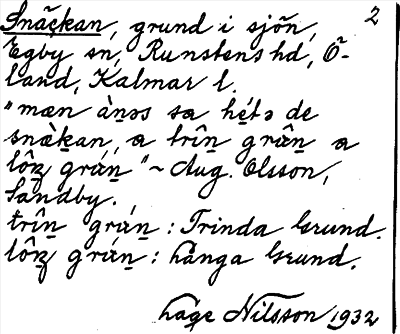 Snäckan, grund i sjön, 2
Egby sn, Runstens hd, Ö-
land, Kalmar l.
"mæn àn̲əs sa hę́tə de
snàk̲an, a trîn̲ grân̲ a
lôn̲ grán̲" ~ Aug. Olsson,
Sandby.
trîn̲ grán̲ : Trinda Grund.
lôn̲ grán̲ : Långa Grund.
Låge Nilsson 1932